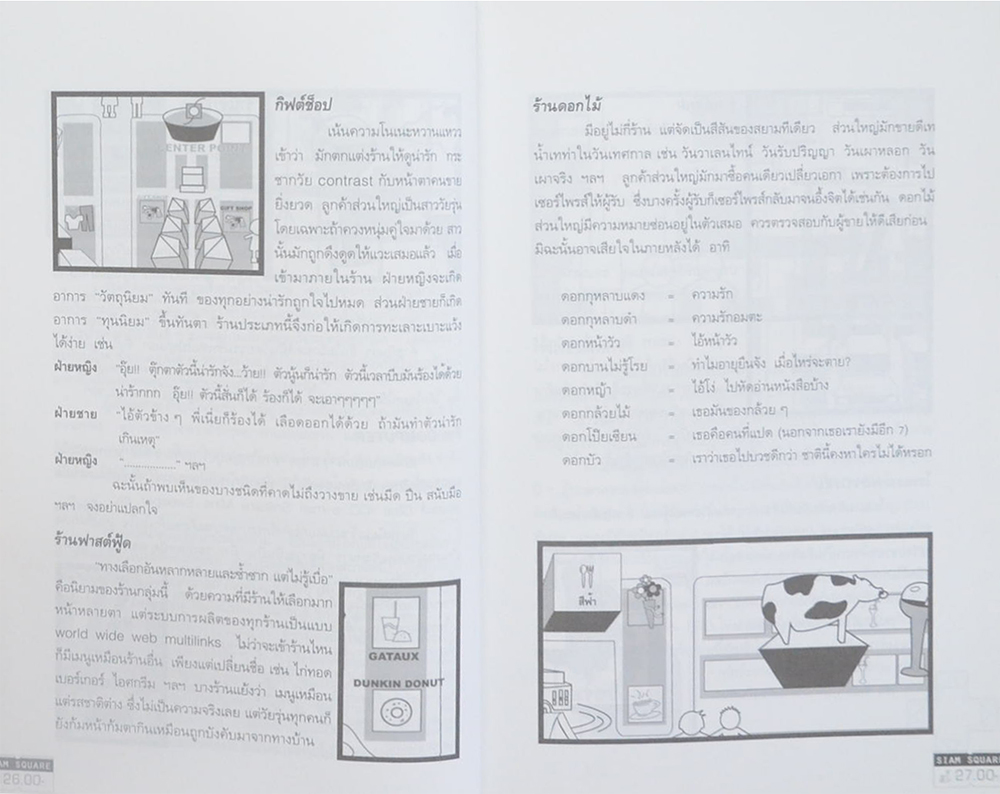 ENTER POINT
GIFT SHOP
กิฟต์ช็อป
เน้นความโนเนะหวานแหวว
เข้าว่า มักตกแต่งร้านให้ดูน่ารัก กระ
ชากวัย contrast กับหน้าตาคนขาย
ยิ่งยวด ลูกค้าส่วนใหญ่เป็นสาววัยรุ่น
โดยเฉพาะถ้าควงหนุ่มคู่ใจมาด้วย สาว
นั้นมักถูกดึงดูดให้แวะเสมอแล้ว เมื่อ
เข้ามาภายในร้าน ฝ่ายหญิงจะเกิด
อาการ "วัตถุนิยม" ทันที ของทุกอย่างน่ารักถูกใจไปหมด ส่วนฝ่ายชายก็เกิด
อาการ "ทุนนิยม" ขึ้นทันตา ร้านประเภทนี้จึงก่อให้เกิดการทะเลาะเบาะแว้ง
ได้ง่าย เช่น
ฝ่ายหญิง "อุ๊ย!! ตุ๊กตาตัวนี้น่ารักจัง...ว้าย!! ตัวนู้นก็น่ารัก ตัวนี้เวลาบีบมันร้องได้ด้วย
น่าร้ากกก อุ๊ย!! ตัวนี้สั่นก็ได้ ร้องก็ได้ จะเอาๆๆๆๆๆ"
ฝ่ายชาย "ไอ้ตัวข้าง ๆ พี่เนี่ยก็ร้องได้ เลือดออกได้ด้วย ถ้ามันทำตัวน่ารัก
เกินเหตุ"
ฝ่ายหญิง "..................." ฯลฯ
ฉะนั้นถ้าพบเห็นของบางชนิดที่คาดไม่ถึงวางขาย เช่นมีด ปืน สนับมือ
ฯลฯ จงอย่าแปลกใจ
ร้านฟาสต์ฟู้ด
"ทางเลือกอันหลากหลายและซ้ำซาก แต่ไม่รู้เบื่อ"
คือนิยามของร้านกลุ่มนี้ ด้วยความที่มีร้านให้เลือกมาก
หน้าหลายตา แต่ระบบการผลิตของทุกร้านเป็นแบบ
world wide web multilinks ไม่ว่าจะเข้าร้านไหน
ก็มีเมนูเหมือนร้านอื่น เพียงแต่เปลี่ยนชื่อ เช่น ไก่ทอด
เบอร์เกอร์ ไอศกรีม ฯลฯ บางร้านแย้งว่า เมนูเหมือน
แต่รสชาติต่าง ซึ่งไม่เป็นความจริงเลย แต่วัยรุ่นทุกคนก็
ยังก้มหน้าก้มตากินเหมือนถูกบังคับมาจากทางบ้าน
GATAUX
DUNKIN DONUT
SIAM SQUARE
26.00-
ร้านดอกไม้
มีอยู่ไม่กี่ร้าน แต่จัดเป็นสีสันของสยามทีเดียว ส่วนใหญ่มักขายดีเท
น้ำเทท่าในวันเทศกาล เช่น วันวาเลนไทน์ วันรับปริญญา วันเผาหลอก วัน
เผาจริง ฯลฯ ลูกค้าส่วนใหญ่มักมาซื้อคนเดียวเปลี่ยวเอกา เพราะต้องการไป
เซอร์ไพรส์ให้ผู้รับ ซึ่งบางครั้งผู้รับก็เซอร์ไพรส์กลับมาจนอึ้งจิตได้เช่นกัน ดอกไม้
ส่วนใหญ่มีความหมายซ่อนอยู่ในตัวเสมอ ควรตรวจสอบกับผู้ขายให้ดีเสียก่อน
มิฉะนั้นอาจเสียใจในภายหลังได้ อาทิ
ดอกกุหลาบแดง = ความรัก
ดอกกุหลาบดำ = ความรักอมตะ
ดอกหน้าวัว = ไอ้หน้าวัว
ดอกบานไม่รู้โรย = ทำไมอายุยืนจัง เมื่อไหร่จะตาย?
ดอกหญ้า = ไอ้โง่ ไปหัดอ่านหนังสือบ้าง
ดอกกล้วยไม้ = เธอมันของกล้วย ๆ
ดอกโป๊ยเซียน = เธอคือคนที่แปด (นอกจากเธอเรายังมีอีก 7)
ดอกบัว = เราว่าเธอไปบวชดีกว่า ชาตินี้คงหาใครไม่ได้หรอก
สีฟ้า
SIAM SQUARE
27.00-